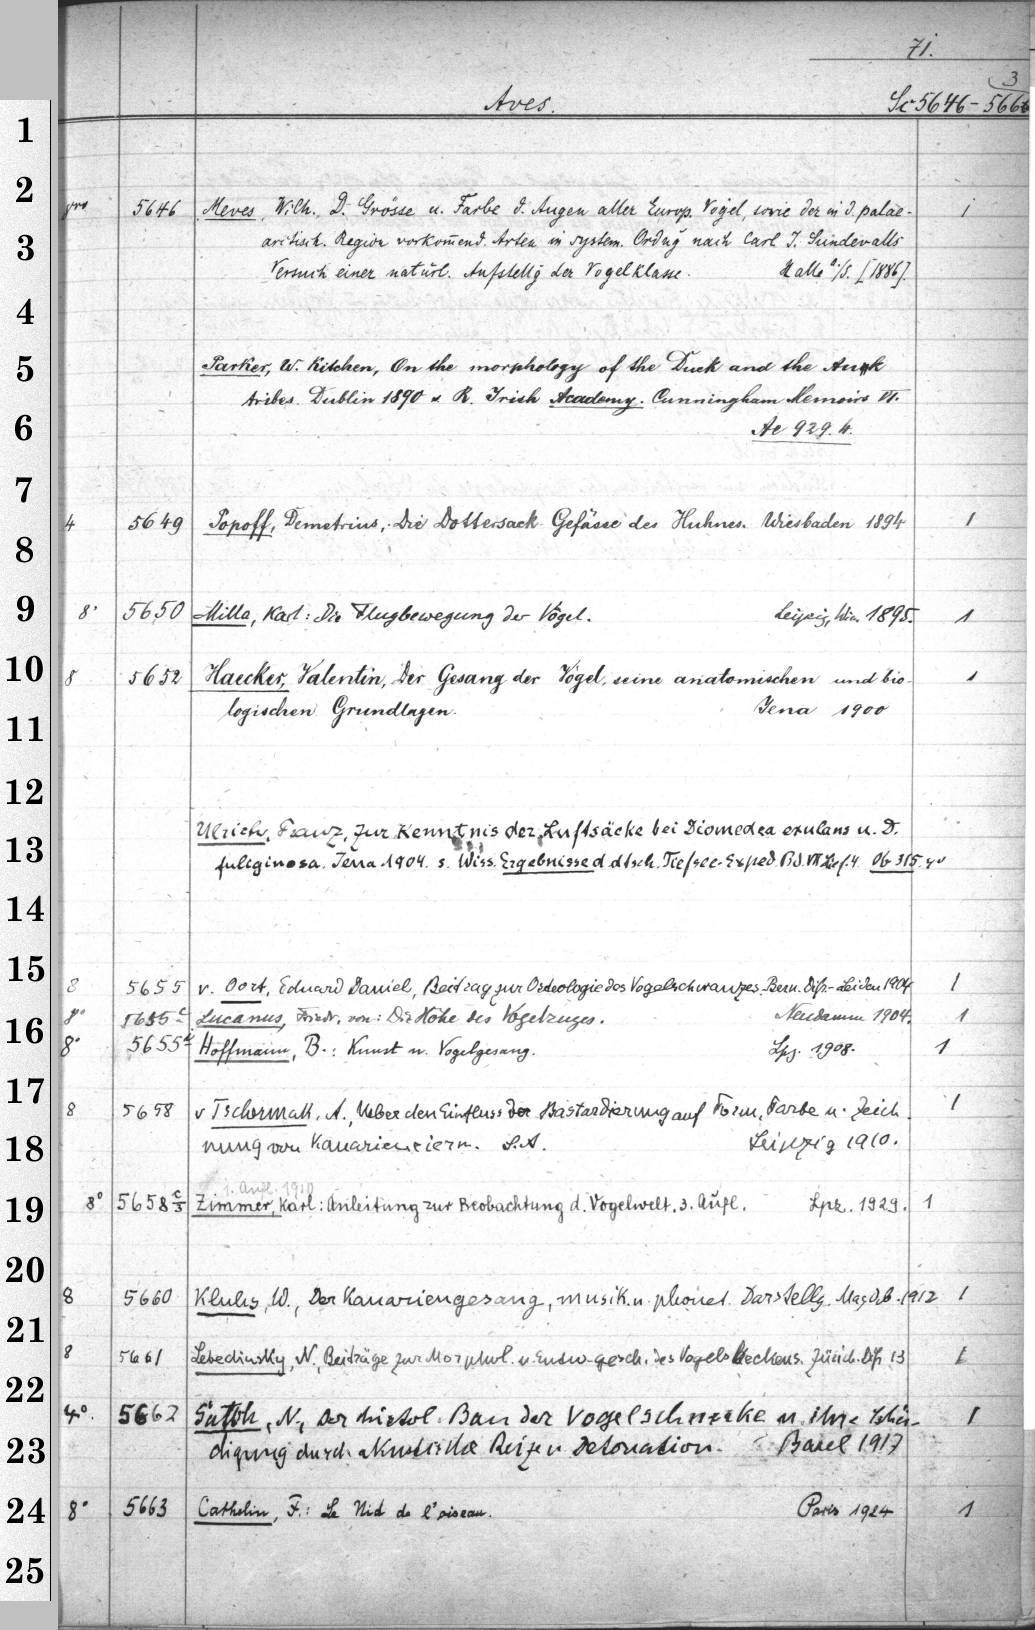 71.
3
Aves. Sc 5646-5666
1
2
gr° 5646 Meves, Wilh., D. Grösse u. Farbe d. Augen aller Europ. Vögel, sowie der in d. palae- 1
3
arctisch. Region vorkom̄end. Arten in system. Ordng nach Carl J. Sundevalls
Versuch einer natürl. Aufstellg der Vogelklasse. Halle a/S. [1886].
4
5
Parker, W. Kitchen, On the morphology of the Duck and the Auk
tribes. Dublin 1890 R. Irish Academy. Cunningham Memoirs VI.
6
Ac 929.4.
7
4 5649 Popoff, Demetrius, Die Dottersack-Gefässe des Huhnes. Wiesbaden 1894 1
8
9
8° 5650 Milla, Karl: Die Flugbewegung der Vögel. Leipzig, Wien 1895. 1
10
8 5652 Haecker, Valentin, Der Gesang der Vögel, seine anatomischen und bio- 1
11
logischen Grundlagen. Jena 1900
12
Ulrich, Franz, Zur Kenntnis der Luftsäcke bei Diomedea exulans u. D.
13
fuliginosa. Jena 1904. s. Wiss. Ergebnisse d. dtsch. Tiefsee-Exped. Bd. VII Lief. 4. Ob 315.4°
14
15
8 5655 v. Oort, Eduard Daniel, Beitrag zur Osteologie des Vogelschwanzes. Bern. Diss.-Leiden 1904 1
8° 5655 c Lucanus, Friedr. von: Die Höhe des Vogelzuges. Neudamm 1904. 1
16
8° 5655 d Hoffmann, B.: Kunst u. Vogelgesang. Lpz. 1908. 1
17
8 5658 v Tschermak, A., Ueber den Einfluss der Bastardierung auf Form, Farbe u. Zeich- 1
18
nung von Kanarieneiern. S.A. Leipzig 1910.
1. Aufl. 1910
19
8° 5658 c/5 Zimmer, Karl: Anleitung zur Beobachtung d. Vogelwelt. 3. Aufl. Lpz. 1929. 1
20
8 5660 Kluhs, W., Der Kanariengesang, musik. u. phonet. Darstellg. Magdeb. 1912 1
21
8 5661 Lebedinsky, N., Beiträge zur Morphol. u. Entw.-gesch. des Vogelbeckens. Zürich. Diss. 13 1
22
4°. 5662 Satoh, N., Der histol. Bau der Vogelschnecke u. ihre Schä- 1
23
digung durch akustische Reize u. Detonation. Basel 1917
24
8° 5663 Cathelin, F.: Le Nid de l'oiseau. Paris 1924 1
25